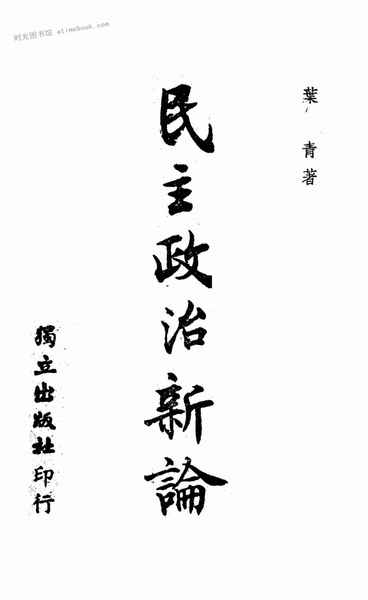 时光图书馆 etimebook.com
葉青著
民主政治新論
獨立出版社印行